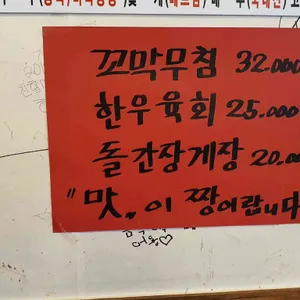 꼬막무침 32.000
한우육회 25.000
돌간장게장 20.00
"맛"이 짱이랍니다